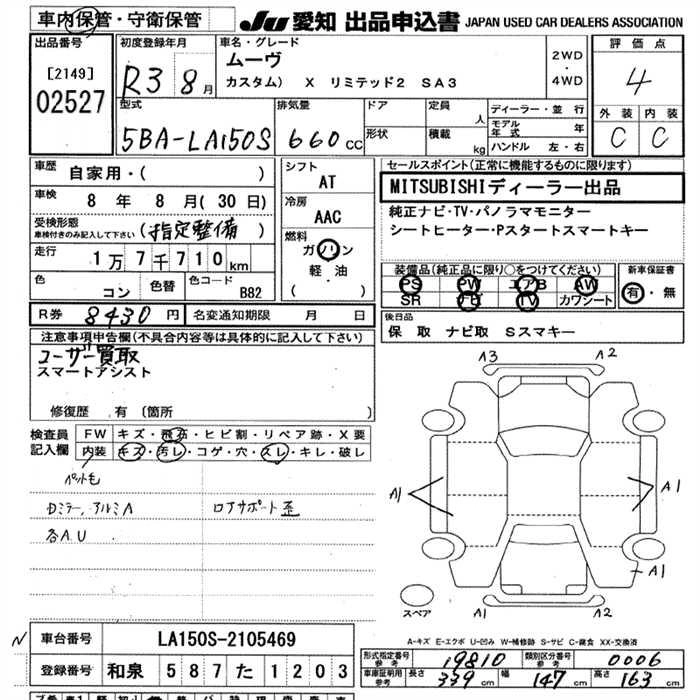 車内保管・守衛保管
JU 愛知 出品申込書 JAPAN USED CAR DEALERS ASSOCIATION
出品番号
[2149]
02527
初度登録年月
R3 8月
車名・グレード
ムーヴ
カスタム) X リミテッド2 SA3
2WD
・
4WD
評価点
4
外装 内装
C C
型式
5BA-LA150S
排気量
660 CC
ドア
形状
定員 人
積載 kg
ディーラー・並行
モデル年式 年
ハンドル 左・右
車歴 自家用・( )
車検 8年 8月(30日)
受検形態
車検付きのみ記入して下さい (指定整備)
走行 1万7千710km
色 コン 色替 色コード B82
シフト
AT
冷房
AAC
燃料
ガソリン
軽・油
( )
セールスポイント(正常に機能するものに限ります)
MITSUBISHIディーラー出品
純正ナビ・TV・パノラマモニター
シートヒーター・Pスタートスマートキー
装備品(純正品に限り○をつけてください)
PS PW エアB AW
SR ナビ TV カワシート
新車保証書
有・無
R券 8430円 名変通知期限 月 日
後日品
保 取 ナビ取 Sスマキー
注意事項申告欄(不具合内容等は具体的に記入して下さい)
ユーザー買取
スマートアシスト
修復歴 有(箇所 )
検査員記入欄
FW キズ・飛石・ヒビ割・リペア跡・X要
内装 キズ・汚レ・コゲ・穴・スレ・キレ・破レ
ペットも
ロアサポート歪
各A.U
A3 A2
A1 A1
A1
A1 A2
スペア
A-キズ E-エクボ U-凹み W-補修跡 S-サビ C-腐食 XX-交換済
N 車台番号 LA150S-2105469
登録番号 和泉 587 た 1203
形式指定番号 参考 19810 類別区分番号 参考 0006
車庫証明用 参考 長さ 339cm 幅 147cm 高さ 163cm